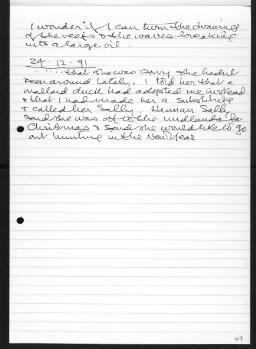 I wonder if I can turn the drawing
of the reefs & the waves breaking
into a large oil.
24-12-91
.... that she was sorry she hadn't
been around lately. I told her that a
mallard duck had adopted me instead
& that I had made her a substitute
& called her Sally. Human Sally
said she was off to the midlands for
Christmas & said she would like to go
out hunting in the New Year
49